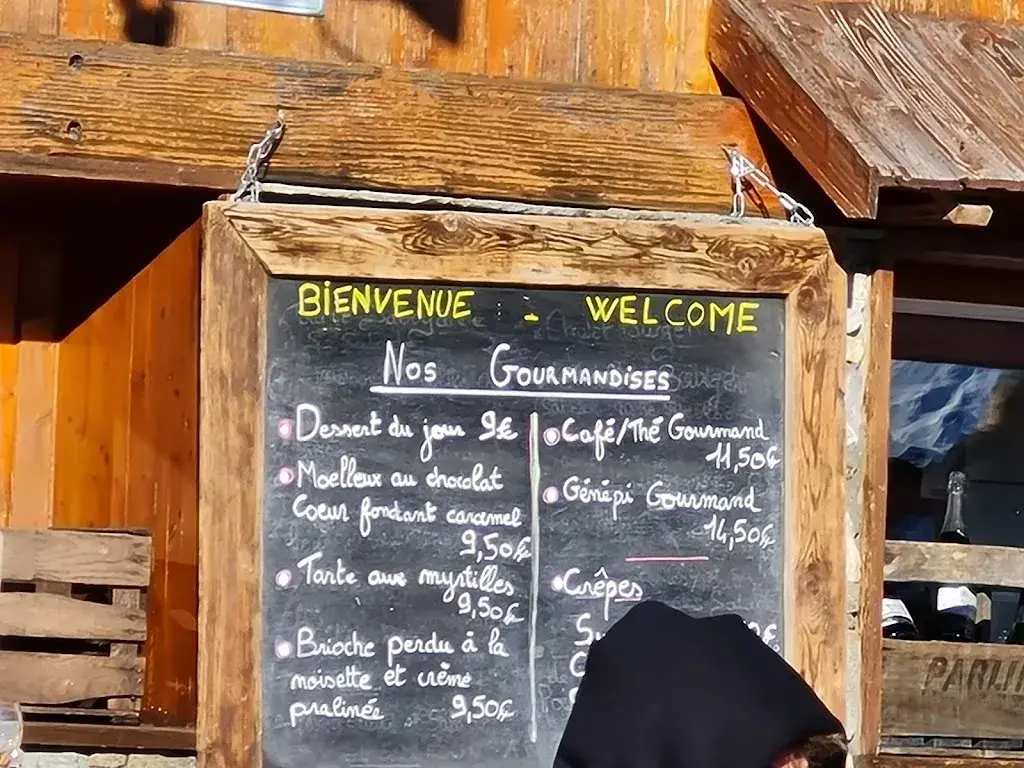 BIENVENUE - WELCOME
Nos Gourmandises
Dessert du jour 9€
Moelleux au chocolat
Coeur fondant caramel
9,50€
Tarte aux myrtilles
9,50€
Brioche perdu à la
noisette et crème
pralinée 9,50€
Café/Thé Gourmand
11,50€
Génépi Gourmand
14,50€
Crêpes